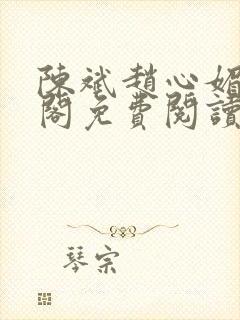 陳斌趙心媚
閣免費閱讀
琴宗